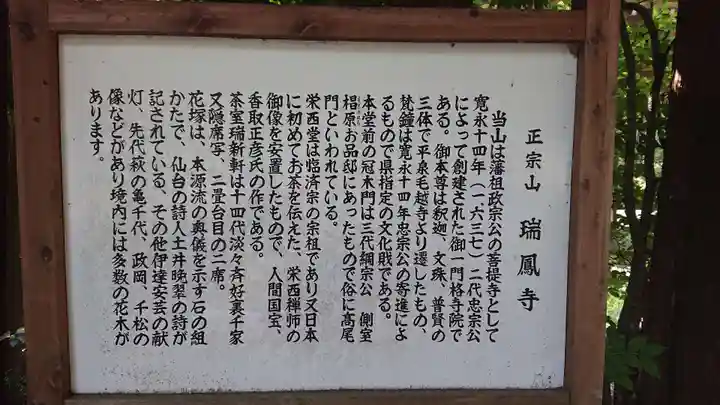 正宗山　瑞鳳寺
当山は藩祖政宗公の菩提寺として
寛永十四年（一六三七）二代忠宗公
によって創建された御一門格寺院で
ある。御本尊は釈迦、文珠、普賢の
三体で平泉毛越寺より遷したもの、
梵鐘は寛永十四年忠宗公の寄進によ
るもので県指定の文化戝である。
本堂前の冠木門は三代綱宗公　側室
椙原お品邸にあったもので俗に髙尾
門といわれている。
栄西堂は臨済宗の宗祖であり又日本
に初めてお茶を伝えた、栄西禅师の
御像を安置したもので、人間国宝、
香取正彦氏の作である。
茶室瑞新軒は十四代淡々斉好裏千家
又隠席写、二畳台目の二席。
花塚は、本源流の奥儀を示す石の組
かたで、仙台の詩人土井晩翠の詩が
記されている、その他伊達安芸の献
灯、先代萩の亀千代、政岡、千松の
像などがあり境内には多数の花木が
あります。